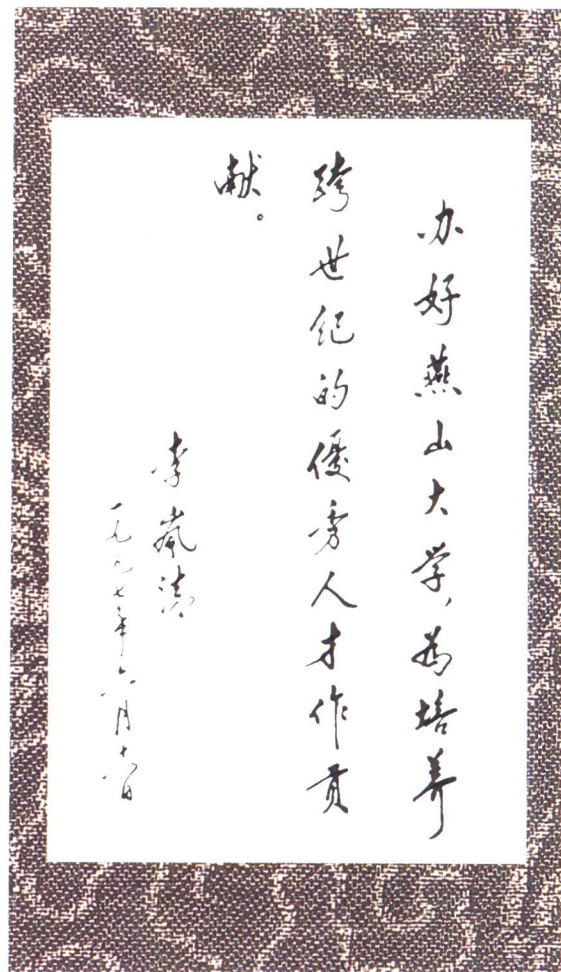 办好燕山大学，为培养
跨世纪的優秀人才作贡
献。
李岚清
一九九七年六月十八日